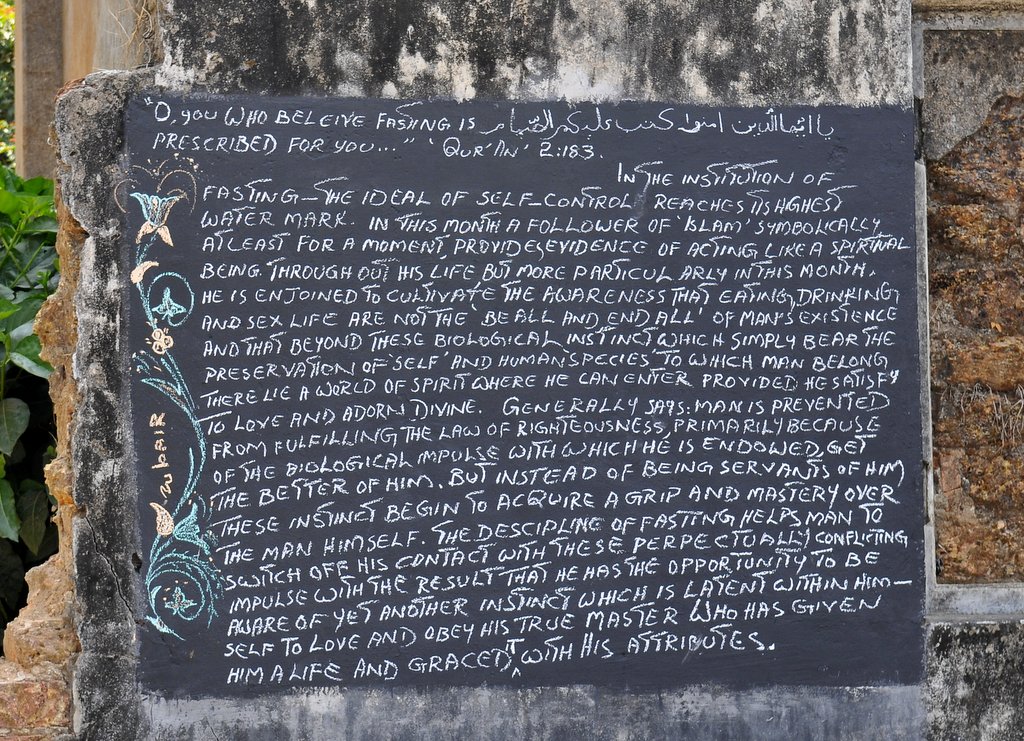 "O, YOU WHO BELEIVE FASTING IS يا ايها الذين امنوا كتب عليكم الصيام
PRESCRIBED FOR YOU..." 'QUR'AN' 2:183.
IN THE INSTITUTION OF
FASTING—THE IDEAL OF SELF-CONTROL REACHES ITS HIGHEST
WATER MARK. IN THIS MONTH A FOLLOWER OF 'ISLAM' SYMBOLICALLY
ATLEAST FOR A MOMENT, PROVIDES EVIDENCE OF ACTING LIKE A SPIRTUAL
BEING. THROUGH OUT HIS LIFE, BUT MORE PARTICULARLY IN THIS MONTH,
HE IS ENJOINED TO CULTIVATE THE AWARENESS THAT EATING, DRINKING
AND SEX LIFE ARE NOT THE 'BE ALL AND END ALL' OF MAN'S EXISTENCE
AND THAT BEYOND THESE BIOLOGICAL INSTINCT WHICH SIMPLY BEAR THE
PRESERVATION OF 'SELF' AND HUMAN 'SPECIES' TO WHICH MAN BELONG
THERE LIE A WORLD OF SPIRIT WHERE HE CAN ENTER PROVIDED HE SATISFY
TO LOVE AND ADORN DIVINE. GENERALLY SAYS: MAN IS PREVENTED
FROM FULFILLING THE LAW OF RIGHTEOUSNESS PRIMARILY BECAUSE
OF THE BIOLOGICAL IMPULSE WITH WHICH HE IS ENDOWED, GET
THE BETTER OF HIM. BUT INSTEAD OF BEING SERVANTS OF HIM,
THESE INSTINCT BEGIN TO ACQUIRE A GRIP AND MASTERY OVER
THE MAN HIMSELF. THE DESCIPLINE OF FASTING HELPS MAN TO
SWITCH OFF HIS CONTACT WITH THESE PERPECTUALLY CONFLICTING
IMPULSE WITH THE RESULT THAT HE HAS THE OPPORTUNITY TO BE
AWARE OF YET ANOTHER INSTINCT WHICH IS LATENT WITHIN HIM—
SELF TO LOVE AND OBEY HIS TRUE MASTER WHO HAS GIVEN
HIM A LIFE AND GRACED IT WITH HIS ATTRIBUTES.
ZUBAIR